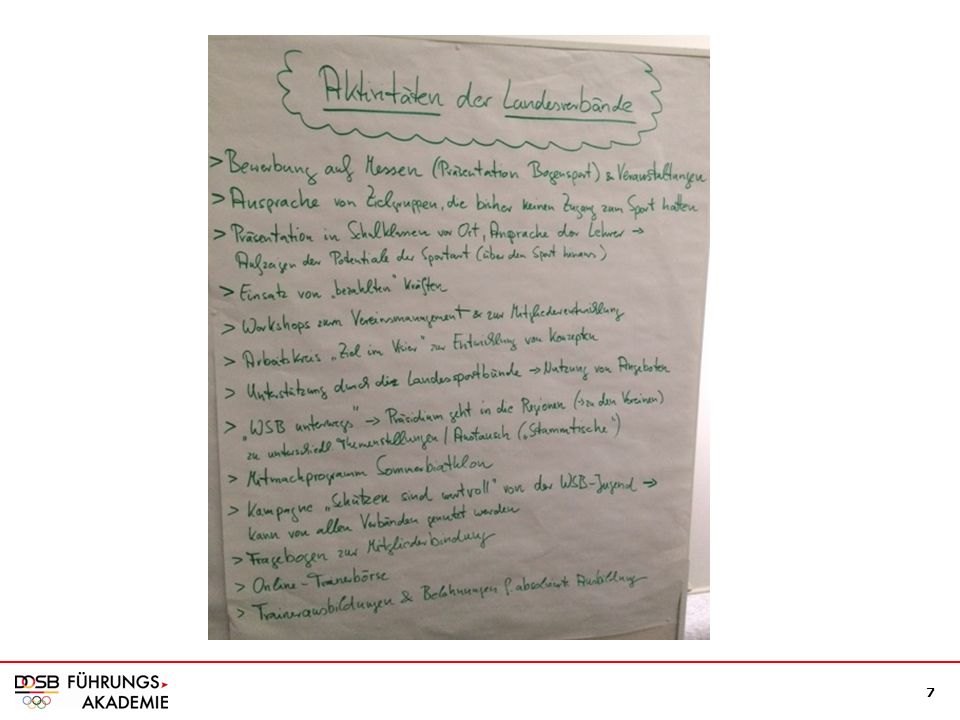 Aktivitäten der Landesverbände
> Bewerbung auf Messen (Präsentation Bogensport) & Veranstaltungen
> Ansprache von Zielgruppen, die bisher keinen Zugang zum Sport hatten
> Präsentation in Schulklassen vor Ort, Ansprache der Lehrer →
Aufzeigen der Potentiale der Sportart (über den Sport hinaus)
> Einsatz von „bezahlten" Kräften
> Workshops zum Vereinsmanagement & zur Mitgliederentwicklung
> Arbeitskreis „Ziel im Visier" zur Entwicklung von Konzepten
> Unterstützung durch die Landessportbünde → Nutzung von Angeboten
> „WSB unterwegs" → Präsidium geht in die Regionen (→ zu den Vereinen)
zu unterschiedl. Themenstellungen / Austausch („Stammtische")
> Mitmachprogramm Sommerbiathlon
> Kampagne „Schützen sind wertvoll" von der WSB-Jugend →
kann von allen Verbänden genutzt werden
> Fragebogen zur Mitgliederbindung
> Online-Trainerbörse
> Trainerausbildungen & Belohnungen f. absolvierte Ausbildung
DOSB FÜHRUNGS
AKADEMIE
7